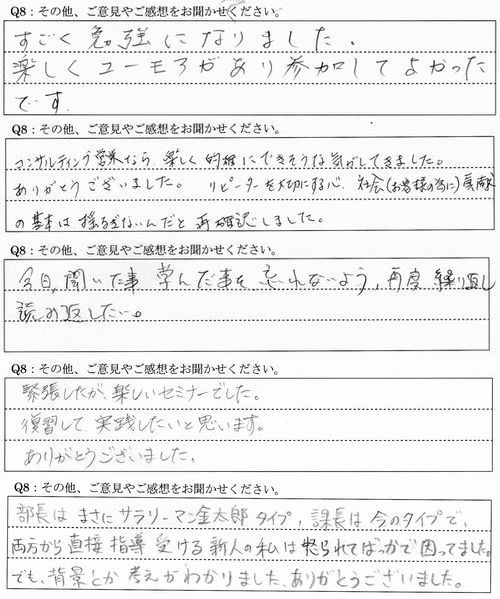 Q8：その他、ご意見やご感想をお聞かせください。
すごく勉強になりました。
楽しくユーモアがあり参加してよかった
です
Q8：その他、ご意見やご感想をお聞かせください。
コンサルティング営業なら、楽しく的確にできそうな気がしてきました。
ありがとうございました。 リピーターを大切にする心、社会(お客様の為に)貢献
の基本は揺るぎないんだと再確認しました。
Q8：その他、ご意見やご感想をお聞かせください。
今日、聞いた事 学んだ事を忘れないよう、再度繰り返し
読み返したい。
Q8：その他、ご意見やご感想をお聞かせください。
緊張したが、楽しいセミナーでした。
復習して実践したいと思います。
ありがとうございました。
Q8：その他、ご意見やご感想をお聞かせください。
部長はまさにサラリーマン金太郎タイプ、課長は今のタイプで、
両方から直接指導受ける新人の私は怒られてばっかで困ってました。
でも、背景とか考えがわかりました、ありがとうございました。